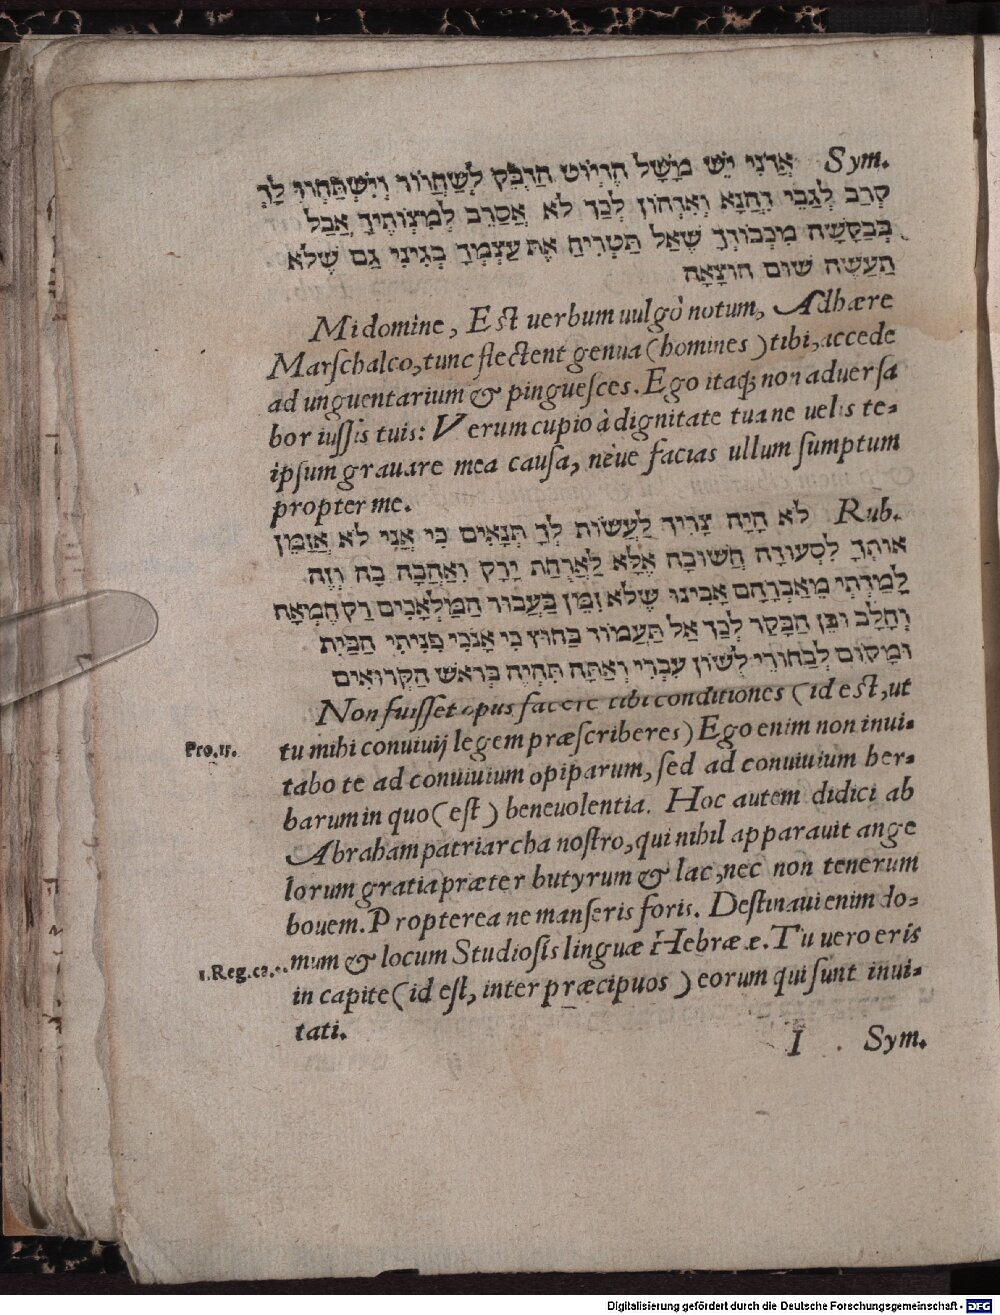 Sym. אֲדֹנִי יֵשׁ מָשָׁל הֶדְיוֹט הַדְבֵּק לְשַׁחֲווֹר וְיִשְׁתַּחֲווּ לַךְ
קְרַב לְגַבֵּי דַהֲנָא וְאִדְּהוֹן לְכַךְ לֹא אֲסָרֵב לְמִצְוֹתֶיךָ אֲבַל
בְּבַקָּשָׁה מִכְּבוֹדְךָ שֶׁאַל תַּטְרִיחַ אֶת עַצְמְךָ בְּגִינִי גַּם שֶׁלֹא
תַּעֲשֶׂה שׁוּם הוֹצָאָה
Mi domine, Est uerbum uulgò notum, Adhære
Marschalco, tunc flectent genua (homines) tibi, accede
ad unguentarium & pinguesces. Ego itaq; non aduersa
bor iussis tuis: Verum cupio à dignitate tua ne uelis te-
ipsum grauare mea causa, nèue facias ullum sumptum
propter me.
Rub. לֹא הָיָה צָרִיךְ לַעֲשׂוֹת לְךָ תְּנָאִים כִּי אֲנִי לֹא אֲזַמֵּן
אוֹתְךָ לִסְעוּדָה חֲשׁוּבָה אֶלָּא לַאֲרֻחַת יָרָק וְאַהֲבָה בָהּ וְזֶה
לָמַדְתִּי מֵאַבְרָהָם אָבִינוּ שֶׁלֹא זִמֵּן בַּעֲבוּר הַמַּלְאָכִים רַק חֶמְאָה
וְחָלָב וּבֶן הַבָּקָר לְכַךְ אַל תַּעֲמוֹד בַּחוּץ כִּי אָנֹכִי פִּנִּיתִי הַבַּיִת
וּמָקוֹם לְבַחוּרֵי לְשׁוֹן עִבְרִי וְאַתָּה תִּהְיֶה בְּרֹאשׁ הַקְּרוּאִים
Non fuisset opus facere tibi conditiones (id est, ut
Pro.15. tu mihi conuiuij legem præscriberes) Ego enim non inui-
tabo te ad conuiuium opiparum, sed ad conuiuium her-
barum in quo (est) beneuolentia. Hoc autem didici ab
Abraham patriarcha nostro, qui nihil apparauit ange
lorum gratia præter butyrum & lac, nec non tenerum
bouem. Propterea ne manseris foris. Destinaui enim do-
1.Reg. mum & locum Studiosis linguæ Hebrææ. Tu uero eris
in capite (id est, inter præcipuos) eorum qui sunt inui-
tati.
I Sym.
Digitalisierung gefördert durch die Deutsche Forschungsgemeinschaft - DFG